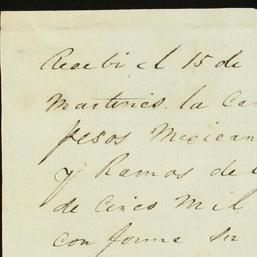 Recebi el 15 de
Martires. la Can
pesos Mexican
y Ramos de
de Cinco Mil
con forme su